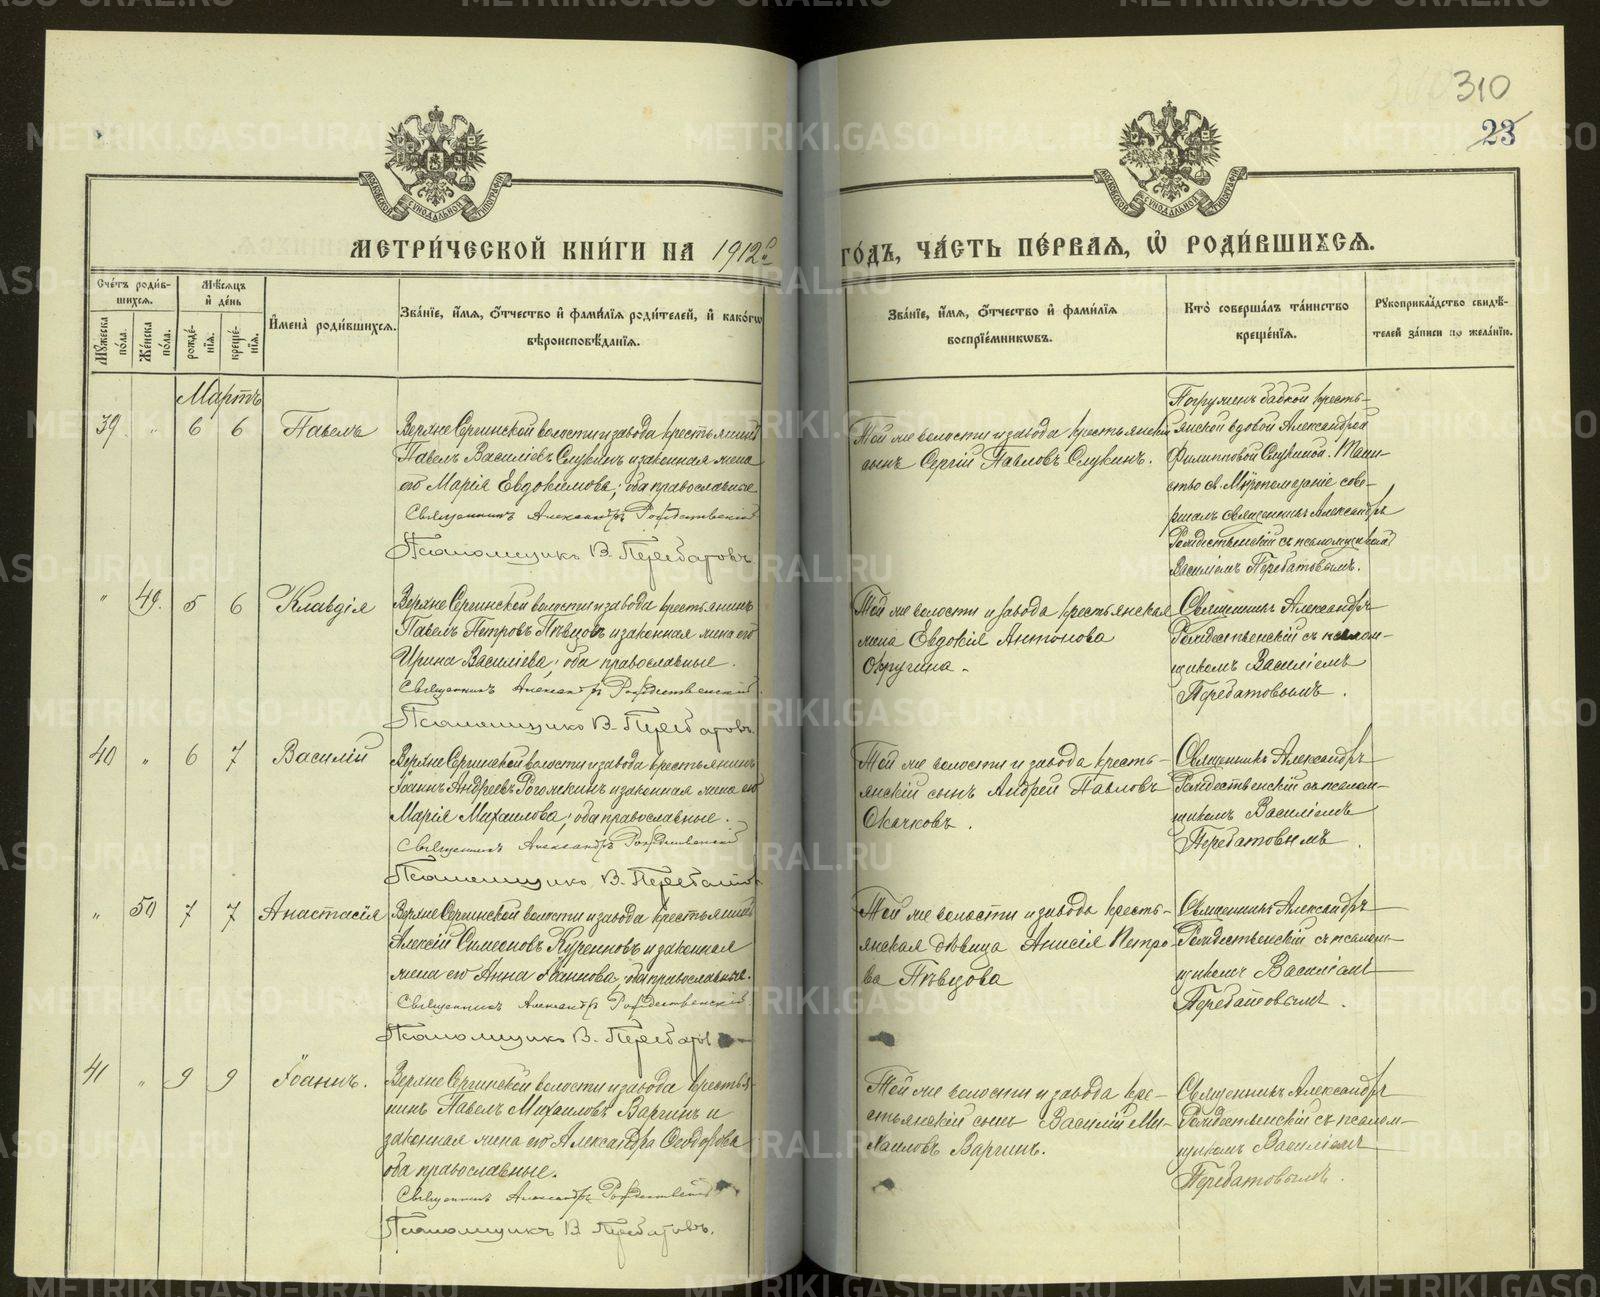 310
23
МЕТРИ́ЧЕСКОЙ КНИ́ГИ НА 1912 го́дъ, ЧА́СТЬ ПЕ́РВАЯ, Ѡ҆ РОДИ́ВШИХСЯ.
Сче́тъ роди́вшихся.
Мꙋ́жеска по́ла.
Же́нска по́ла.
Мѣ́сяцъ и҆ де́нь
рожде́нїя.
креще́нїя.
И҆мена̀ роди́вшихся.
Зва́нїе, и҆́мя, ѻ҆́тчество и҆ фами́лїя роди́телей, и҆ како́гѡ
вѣроисповѣ́данїя.
Зва́нїе, и҆́мя, ѻ҆́тчество и҆ фами́лїя
воспрїе́мникѡвъ.
Кто̀ соверша́лъ та́инство
креще́нїя.
Рꙋкоприкла́дство свидѣ́-
телей за́писи по жела́нїю.
Мартъ
39 " 6 6 Павелъ
Верхне Сергинской волости и завода крестьянинъ
Павелъ Васильевъ Слукинъ и законная жена
его Марія Евдокимова; оба православные
Священникъ Александръ Рождественскій
Псаломщикъ В. Перебатовъ.
Той же волости и завода крестьянскій
сынъ Сергій Павловъ Слукинъ.
Погруженъ бабкой кресть-
янской вдовой Александрой
Филипповой Слукиной. Таин-
ство св. Мѵропомазаніе сове-
ршалъ священникъ Александръ
Рождественскій съ псаломщикомъ
Василіемъ Перебатовымъ.
" 49. 5 6 Клавдія
Верхне Сергинской волости и завода крестьянинъ
Павелъ Петровъ Пѣвцовъ и законная жена его
Ирина Васильева; оба православные.
Священникъ Александръ Рождественскій.
Псаломщикъ В. Перебатовъ.
Той же волости и завода крестьянская
жена Евдокія Антонова
Округина.
Священникъ Александръ
Рождественскій съ псалом-
щикомъ Василіемъ
Перебатовымъ.
40 " 6 7 Василій
Верхне Сергинской волости и завода крестьянинъ
Іоаннъ Андреевъ Рогожкинъ и законная жена его
Марія Михаилова; оба православные.
Священникъ Александръ Рождественскій
Псаломщикъ В. Перебатов
Той же волости и завода кресть-
янскій сынъ Андрей Павловъ
Скачковъ.
Священникъ Александръ
Рождественскій съ псалом-
щикомъ Василіемъ
Перебатовымъ.
" 50 7 7 Анастасія
Верхне Сергинской волости и завода крестьянинъ
Алексій Симеоновъ и законная
жена его Анна Іоаннова; оба православные.
Священникъ Александръ Рождественскій.
Псаломщикъ В. Перебатов
Той же волости и завода кресть-
янская дѣвица Анисія Петро-
ва Пѣвцова
Священникъ Александръ
Рождественскій съ псалом-
щикомъ Василіемъ
Перебатовымъ.
41 " 9 9 Іоаннъ.
Верхне Сергинской волости и завода крестья-
нинъ Павелъ Михаиловъ Варгинъ и
законная жена его Александра Ѳеодорова
оба православные.
Священникъ Александръ Рождественскій
Псаломщикъ В. Перебатовъ.
Той же волости и завода кре-
стьянскій сынъ Василій Ми-
хаиловъ Варгинъ.
Священникъ Александръ
Рождественскій съ псалом-
щикомъ Василіемъ
Перебатовымъ.
METRIKI.GASO-URAL.RU